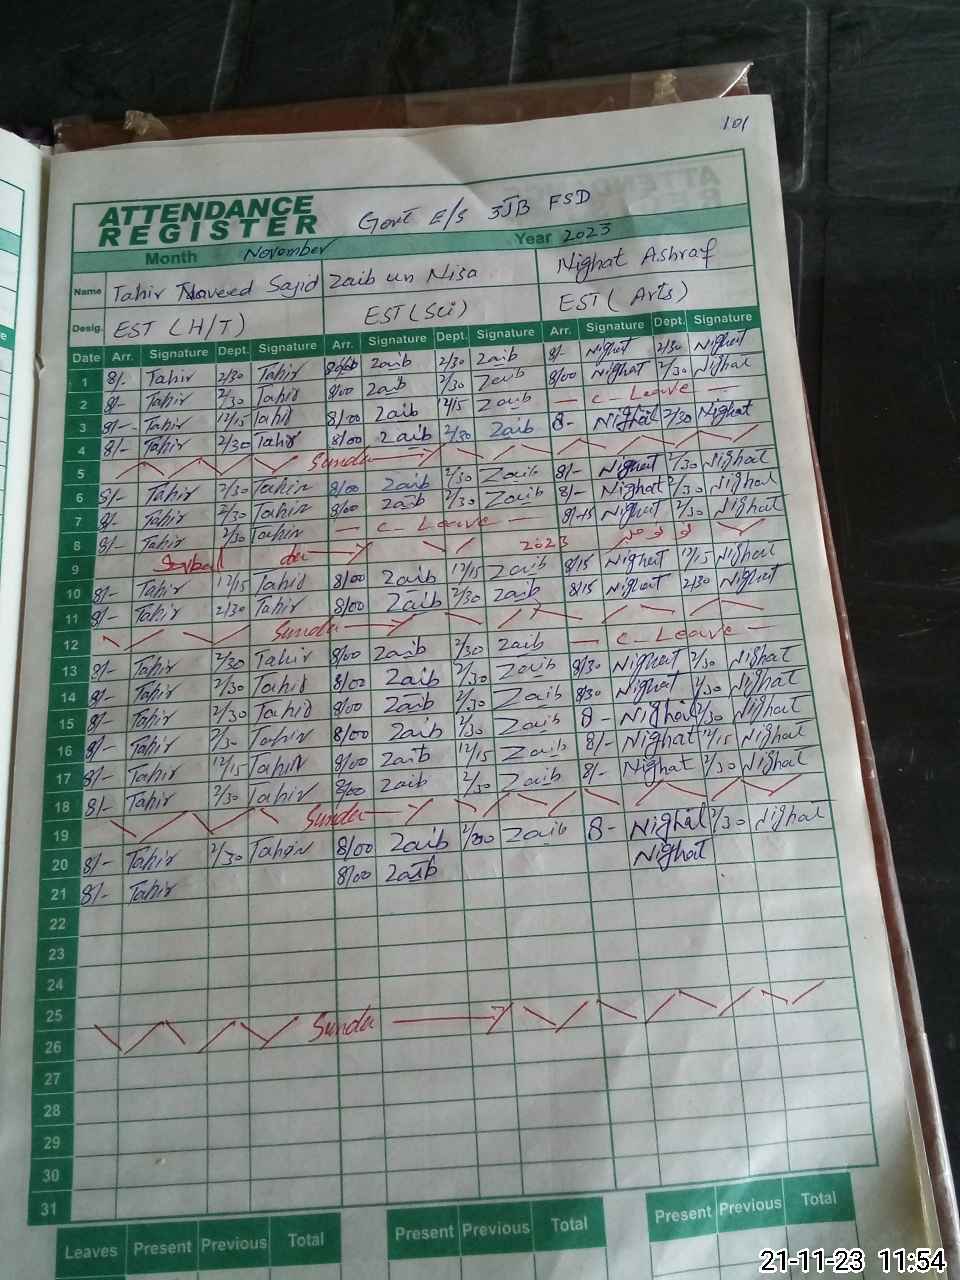 101
ATTENDANCE
REGISTER
Govt E/S 3JB FSD
Month November Year 2023
Name Tahir Naveed Sajid Zaib un Nisa Nighat Ashraf
Desig. EST (H/T) EST (Sci) EST (Arts)
Date Arr. Signature Dept. Signature Arr. Signature Dept. Signature Arr. Signature Dept. Signature
1 8/- Tahir 2/30 Tahir Zaib 2/30 Zaib 8/- Nighat 2/30 Nighat
2 8/- Tahir 2/30 Tahir 8/00 Zaib 2/30 Zaib 8/00 Nighat 2/30 Nighat
3 8/- Tahir 12/15 Tahir 8/00 Zaib 12/15 Zaib — C-Leave —
4 8/- Tahir 2/30 Tahir 8/00 Zaib 2/30 Zaib 8- Nighat 2/30 Nighat
5 Sunda
6 8/- Tahir 2/30 Tahir 8/00 Zaib 2/30 Zaib 8/- Nighat 2/30 Nighat
7 8/- Tahir 2/30 Tahir 8/00 Zaib 2/30 Zaib 8/- Nighat 2/30 Nighat
8 8/- Tahir 2/30 Tahir — C-Leave — Nighat 2/30 Nighat
9 2023
10 8/- Tahir 12/15 Tahir 8/00 Zaib 12/15 Zaib 8/15 Nighat 12/15 Nighat
11 8/- Tahir 2/30 Tahir 8/00 Zaib 2/30 Zaib 8/15 Nighat 2/30 Nighat
12 Sunda
13 8/- Tahir 2/30 Tahir 8/00 Zaib 2/30 Zaib — C-Leave —
14 8/- Tahir 2/30 Tahir 8/00 Zaib 2/30 Zaib 8/30 Nighat 2/30 Nighat
15 8/- Tahir 2/30 Tahir 8/00 Zaib 2/30 Zaib 8/30 Nighat 2/30 Nighat
16 8/- Tahir 2/30 Tahir 8/00 Zaib 2/30 Zaib 8- Nighat 2/30 Nighat
17 8/- Tahir 12/15 Tahir 8/00 Zaib 12/15 Zaib 8/- Nighat 12/15 Nighat
18 8/- Tahir 2/30 Tahir 8/00 Zaib 2/30 Zaib 8/- Nighat 2/30 Nighat
19 Sunda
20 8/- Tahir 2/30 Tahir 8/00 Zaib 2/30 Zaib 8- Nighat 2/30 Nighat
21 8/- Tahir 8/00 Zaib Nighat
22
23
24
25
26 Sunda
27
28
29
30
31
Leaves Present Previous Total Present Previous Total Present Previous Total
21-11-23 11:54